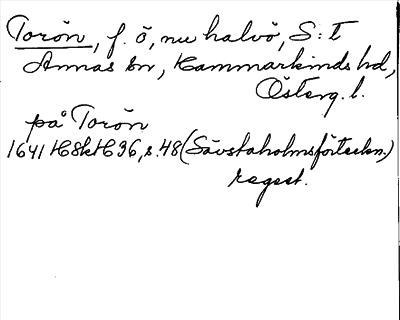 Torön, f. ö, nu halvö, S:t
Annas sn, Hammarkinds hd,
Österg. l.
på Torön
1641 HSH H 36, s. 48 (Sävstaholmsförteckn.)
regest.